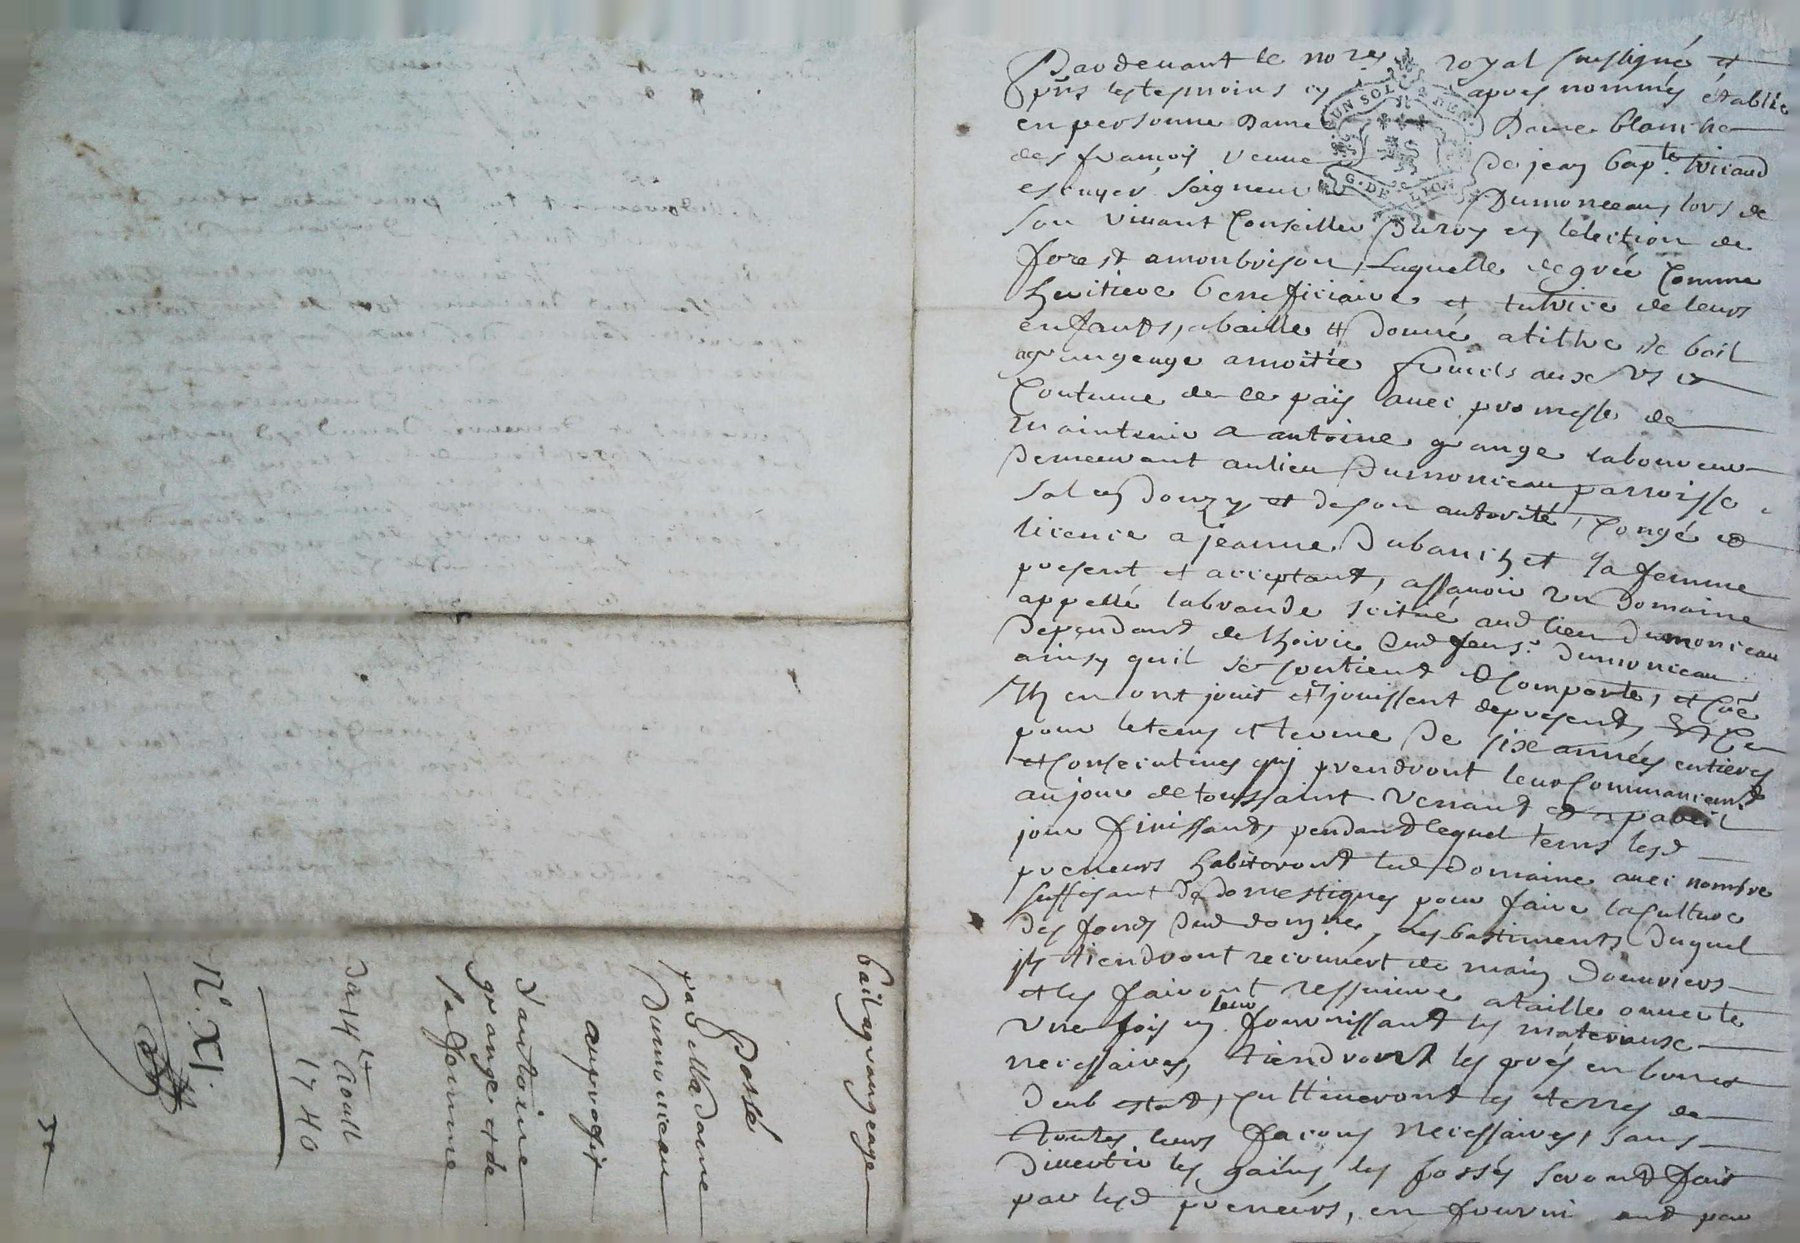 Pardevant le nore royal soussigné et
puis les tesmoins cy apres nommés établie
en personne Dame Dame blanche
des françois veuve de jean bapte
escuyer seigneur Dumonceau, lors de
son vivant Conseiller Duroy en lelection de
forest amonbrison, Laquelle de gréé Comme
heritiere beneficiaire et tutrice de leurs
enfants, a baillé et donné atiltre de bail
agrangeage amoitié fruicts aux us et
Coutume de ce païs avec promesse de
maintenir a antoine grange laboureur
demeurant aulieu Dumonceau parroisse
saley douzy et de son autorité, Congé et
licence a jeanne Dubanchet sa femme
present et acceptant, assavoir un domaine
appellé labrande scitué aud lieu dumonceau
dependant de lhoirie dud feu sr. dumonceau
ainsy quil se contient et comporte, et que
jls en ont jouis et jouissent depresent,
pour letems et terme de six années entieres
et consecutives quj prendront leur commancemt
aujour de toussaint venant et a pareil
jour finissant, pendant lequel tems lesd
preneurs habiteront led domaine avec nombre
suffisant de domestiques pour faire la culture
des fonds dud domne, les bastiments duquel
jls tiendront recouvert de main douvriers
et les fairont ressuivre ataille ouverte
une fois en leur fournissant les materiaux
necessaires, tiendront les prés en bons
deub estat, cultiveront les terres de
toutes leurs façons necessaires, sans
divertir les gains, les fossés seront fait
par lesd preneurs, en fourni ant par
bail agrangeage
Passé
par Mad dame
Dumonceau
auproffit
d'antoine
grange et de
sa femme
du 14e aoust
1740
N°. XI.